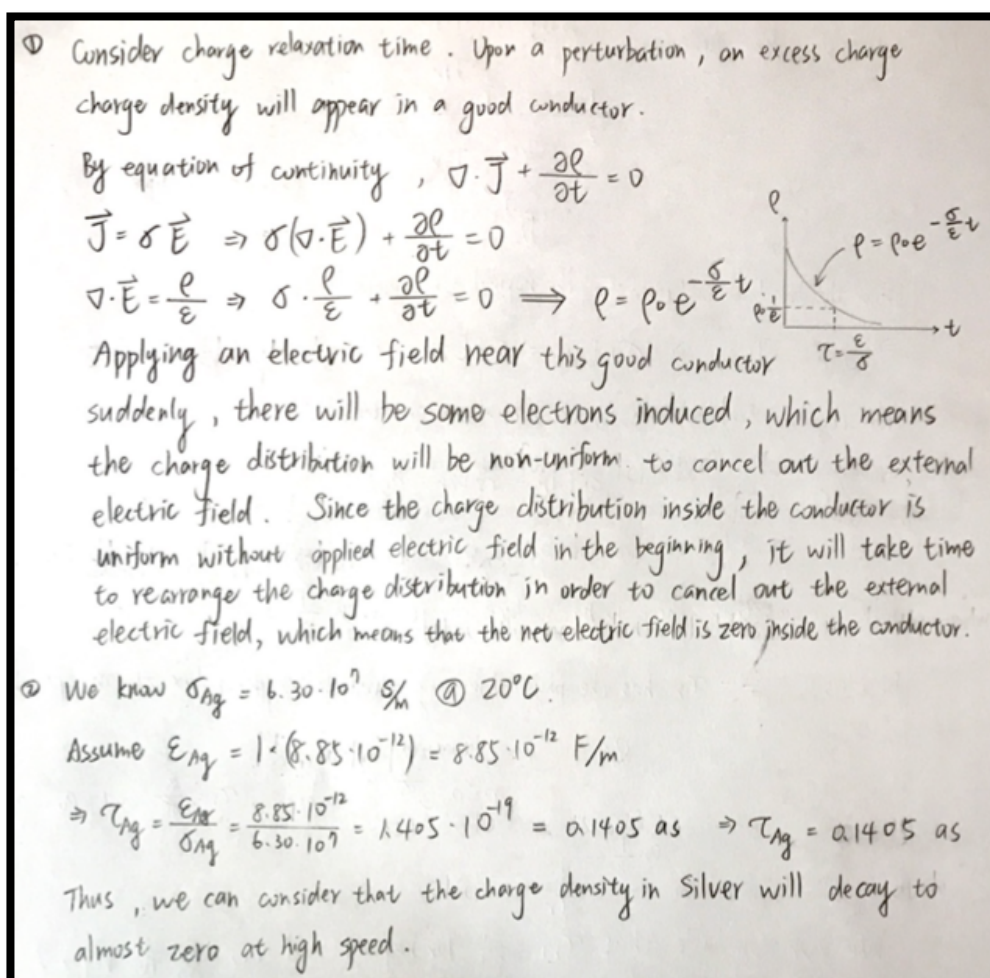 ① Consider charge relaxation time. Upon a perturbation, an excess charge
charge density will appear in a good conductor.
By equation of continuity, ∇·J⃗ + ∂ρ/∂t = 0
J⃗ = σE⃗ ⇒ σ(∇·E⃗) + ∂ρ/∂t = 0
∇·E⃗ = ρ/ε ⇒ σ·ρ/ε + ∂ρ/∂t = 0 ⟹ ρ = ρ₀e^(-σ/ε t)
ρ
ρ = ρ₀e^(-σ/ε t)
ρ₀·1/e
t
τ = ε/σ
Applying an electric field near this good conductor
suddenly, there will be some electrons induced, which means
the charge distribution will be non-uniform to cancel out the external
electric field. Since the charge distribution inside the conductor is
uniform without applied electric field in the beginning, it will take time
to rearrange the charge distribution in order to cancel out the external
electric field, which means that the net electric field is zero inside the conductor.
② We know σ_Ag = 6.30·10⁷ S/m @ 20°C.
Assume ε_Ag = 1·(8.85·10⁻¹²) = 8.85·10⁻¹² F/m
⇒ τ_Ag = ε_Ag/σ_Ag = 8.85·10⁻¹²/6.30·10⁷ = 1.405·10⁻¹⁹ = 0.1405 as ⇒ τ_Ag = 0.1405 as
Thus, we can consider that the charge density in Silver will decay to
almost zero at high speed.